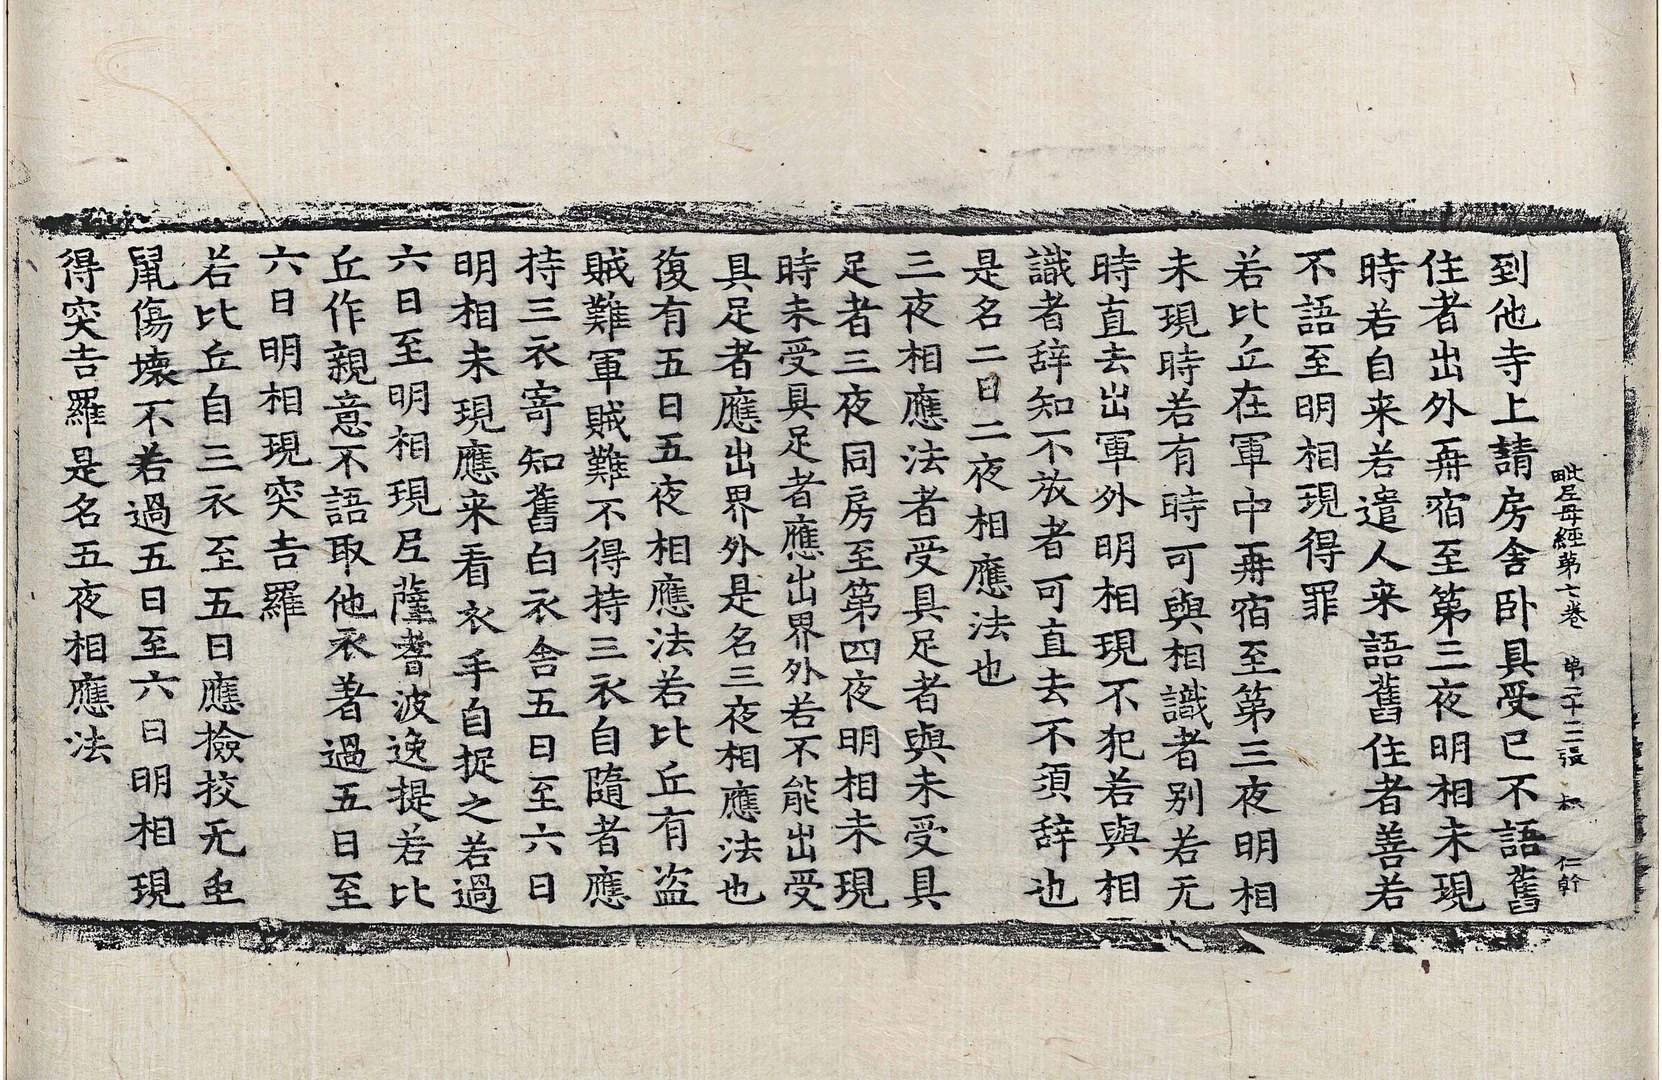 毗尼母經第七卷　第二十二張　極　仁幹
到他寺上請房舍卧具受已不語舊
住者出外再宿至第三夜明相未現
時若自来若遣人来語舊住者善若
不語至明相現得罪
若比丘在軍中再宿至第三夜明相
未現時若有時可與相識者別若无
時直去出軍外明相現不犯若與相
識者辞知不放者可直去不須辞也
是名二日二夜相應法也
三夜相應法者受具足者與未受具
足者三夜同房至第四夜明相未現
時未受具足者應出界外若不能出受
具足者應出界外是名三夜相應法也
復有五日五夜相應法若比丘有盗
賊難軍賊難不得持三衣自隨者應
持三衣寄知舊白衣舍五日至六日
明相未現應来看衣手自捉之若過
六日至明相現尼薩耆波逸提若比
丘作親意不語取他衣著過五日至
六日明相現突吉羅
若比丘自三衣至五日應撿挍无虫
鼠傷壞不若過五日至六日明相現
得突吉羅是名五夜相應法